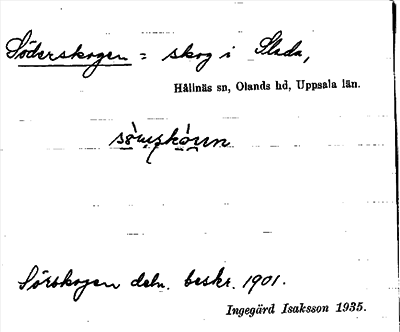 Söderskogen = skog i Slada,
Hållnäs sn, Olands hd, Uppsala län.
Sörskogen deln. beskr. 1901.
Ingegärd Isaksson 1935.